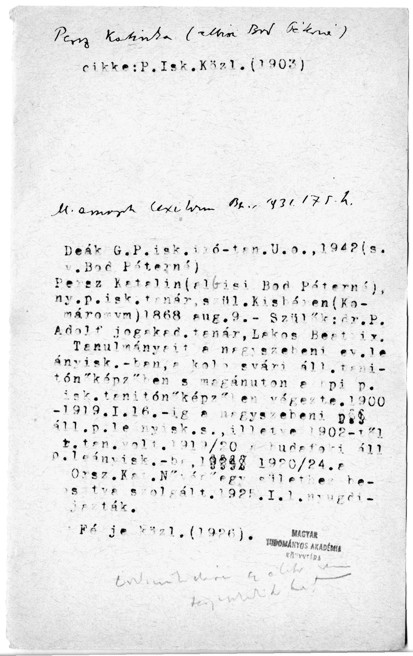 Persz Katinka (altisi Bod Péterné)
cikke:P.Isk.Közl.(1903)
M. asszonyok lexikona Bp., 1931. 175. h.
Deák G.P.isk.író-tan.U.o.,1942(s.
v.Bod Péterné)
Persz Katalin(altisi Bod Péterné),
ny.p.isk.tanár,szül.Kisbéren(Ko-
márom vm)1868 aug.9.- Szülők:dr.P.
Adolf jogakad.tanár,Lakos Beatrix.
Tanulmányait a nagyszebeni ev.le
ányisk.-ban,a kolozsvári áll.tani-
tónőképzőben s magánuton a bpi p.
isk.tanitónőképzőben végezte.1900
-1919.I.16.-ig a nagyszebeni
áll.p.leányisk.s.,illetve 1902-től
r.tan.volt.1919/20 a budafoki áll
p.leányisk.-ba, 1920/24.a
Orsz.Kat.Nővédőegyesületbe be-
osztva szolgált.1925.I.1.nyugdí-
jazták.
Férje közl.(1926).
MAGYAR
TUDOMÁNYOS AKADÉMIA
KÖNYVTÁRA